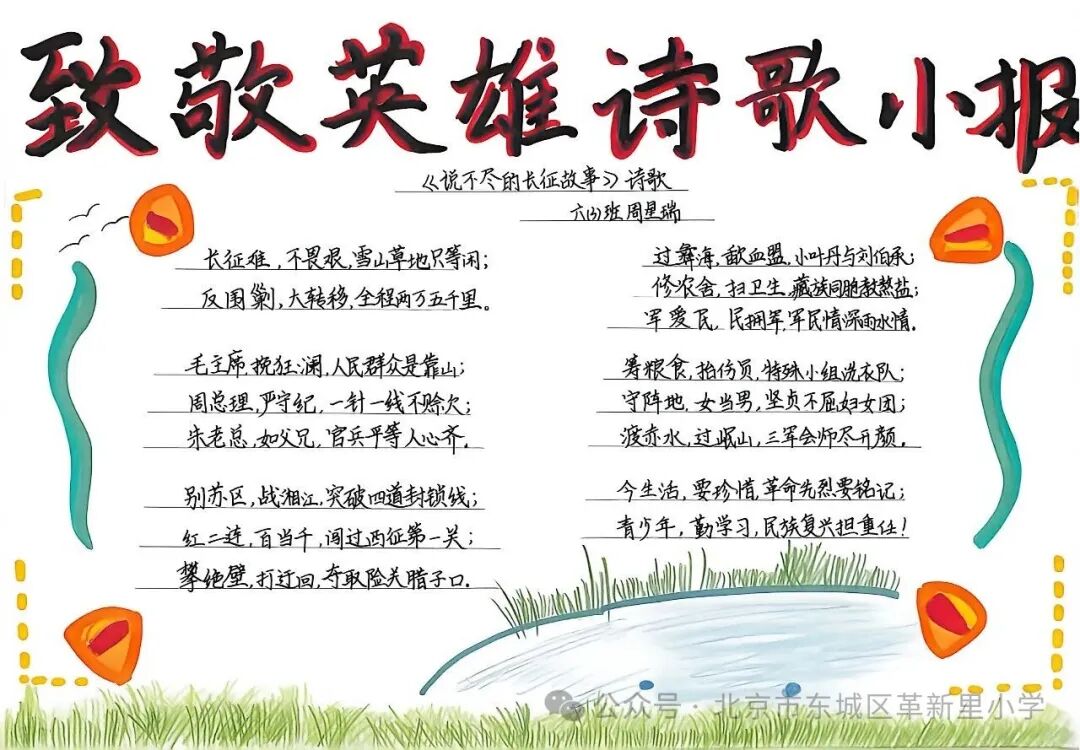 致敬英雄诗歌小报
《说不尽的长征故事》诗歌
六(3)班 周星瑞
长征难,不畏艰,雪山草地只等闲;
反围剿,大转移,全程两万五千里。
毛主席,挽狂澜,人民群众是靠山;
周总理,严守纪,一针一线不赊欠;
朱老总,如父兄,官兵平等人心齐。
别苏区,战湘江,突破四道封锁线;
红二连,百当千,闯过西征第一关;
攀绝壁,打迂回,夺取险关腊子口.
过彝海,歃血盟,小叶丹与刘伯承;
修农舍,扫卫生,藏族同胞教熬盐;
军爱民,民拥军,军民情深雨水情.
筹粮食,抬伤员,特殊小组洗衣队;
守阵地,女当男,坚贞不屈妇女团;
渡赤水,过岷山,三军会师尽开颜.
今生活,要珍惜,革命先烈要铭记;
青少年,勤学习,民族复兴担重任!
公众号·北京市东城区革新里小学